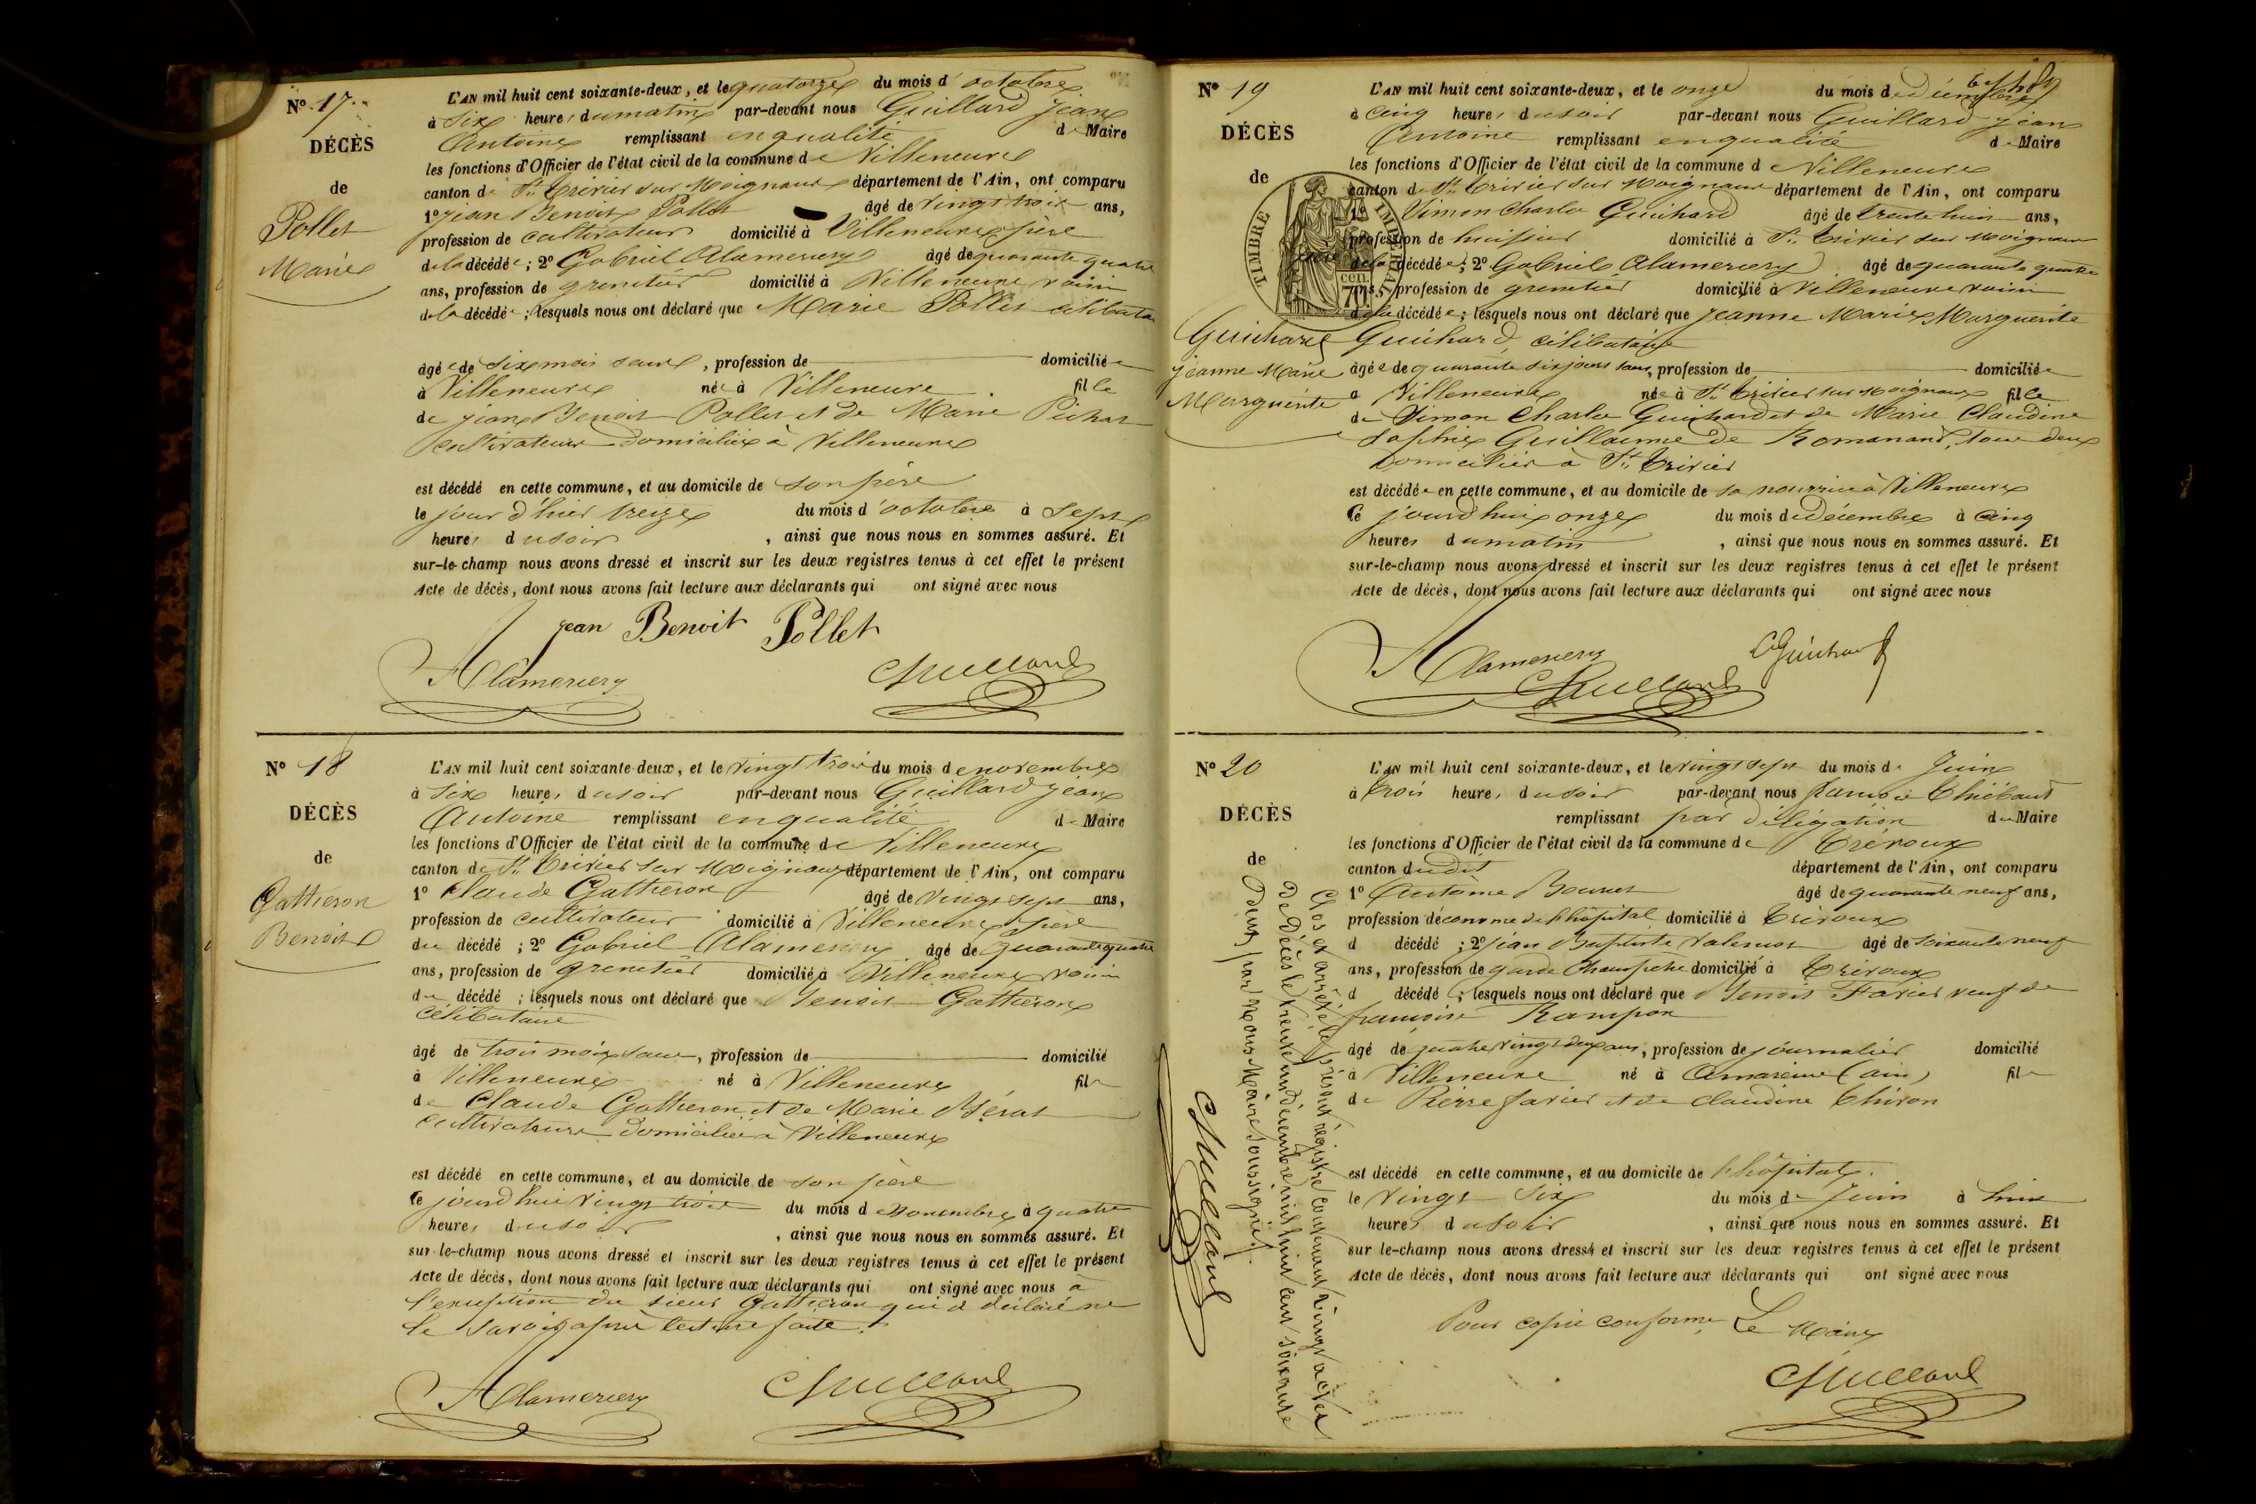 N° 17
DÉCÈS
de
Pollet
Marie
L'AN mil huit cent soixante-deux, et le quatorze du mois d'octobre
à six heures du matin par-devant nous Guillard Jean
Antoine remplissant en qualité de Maire
les fonctions d'Officier de l'état civil de la commune de Villeneuve
canton de St Trivier sur Moignans département de l'Ain, ont comparu
1° Jean Benoit Pollet âgé de vingt trois ans,
profession de cultivateur domicilié à Villeneuve père
de la décédée ; 2° Gabriel Alamercery âgé de quarante quatre
ans, profession de grenetier domicilié à Villeneuve voisin
de la décédée ; lesquels nous ont déclaré que Marie Pollet célibataire
âgée de six mois sans, profession de domiciliée
à Villeneuve née à Villeneuve fille
de Jean Benoit Pollet et de Marie Péchat
cultivateurs domiciliés à Villeneuve
est décédé en cette commune, et au domicile de son père
le jour d'hier treize du mois d'octobre à sept
heures du soir, ainsi que nous nous en sommes assuré. Et
sur-le-champ nous avons dressé et inscrit sur les deux registres tenus à cet effet le présent
Acte de décès, dont nous avons fait lecture aux déclarants qui ont signé avec nous
Jean Benoit Pollet
Alamercery Guillard
N° 18
DÉCÈS
de
Gatheron
Benoit
L'AN mil huit cent soixante-deux, et le vingt trois du mois de novembre
à six heures du soir par-devant nous Guillard Jean
Antoine remplissant en qualité de Maire
les fonctions d'Officier de l'état civil de la commune de Villeneuve
canton de St Trivier sur Moignans département de l'Ain, ont comparu
1° Claude Gatheron âgé de vingt sept ans,
profession de cultivateur domicilié à Villeneuve père
du décédé ; 2° Gabriel Alamercery âgé de quarante quatre
ans, profession de grenetier domicilié à Villeneuve voisin
du décédé ; lesquels nous ont déclaré que Benoit Gatheron
célibataire
âgé de trois mois sans, profession de domicilié
à Villeneuve né à Villeneuve fils
de Claude Gatheron et de Marie Mérat
cultivateurs domiciliés à Villeneuve
est décédé en cette commune, et au domicile de son père
le jourd'hui vingt trois du mois de novembre à quatre
heures du soir, ainsi que nous nous en sommes assuré. Et
sur-le-champ nous avons dressé et inscrit sur les deux registres tenus à cet effet le présent
Acte de décès, dont nous avons fait lecture aux déclarants qui ont signé avec nous à
l'exception du sieur Gatheron qui a déclaré ne
le savoir après lecture faite.
Alamercery Guillard
N° 19
DÉCÈS
de
TIMBRE IMPÉRIAL
70 cen.
Guichard
Jeanne Marie
Marguerite
L'AN mil huit cent soixante-deux, et le onze du mois de décembre
à cinq heures du soir par-devant nous Guillard Jean
Antoine remplissant en qualité de Maire
les fonctions d'Officier de l'état civil de la commune de Villeneuve
canton de St Trivier sur Moignans département de l'Ain, ont comparu
1° Simon Charles Guichard âgé de trente huit ans,
profession de huissier domicilié à St Trivier sur Moignans
père de la décédée ; 2° Gabriel Alamercery âgé de quarante quatre
ans, profession de grenetier domicilié à Villeneuve voisin
de la décédée ; lesquels nous ont déclaré que Jeanne Marie Marguerite
Guichard, célibataire
âgée de quarante six jours sans, profession de domiciliée
à Villeneuve née à St Trivier sur Moignans fille
de Simon Charles Guichard et de Marie Claudine
Sophie Guillaume de Romanans, tous deux
domiciliés à St Trivier
est décédée en cette commune, et au domicile de sa nourrice à Villeneuve
le jourd'hui onze du mois de décembre à cinq
heures du matin, ainsi que nous nous en sommes assuré. Et
sur-le-champ nous avons dressé et inscrit sur les deux registres tenus à cet effet le présent
Acte de décès, dont nous avons fait lecture aux déclarants qui ont signé avec nous
Alamercery CGuichard
Guillard
N° 20
DÉCÈS
de
L'AN mil huit cent soixante-deux, et le vingt sept du mois de Juin
à trois heures du soir par-devant nous François Thiébaud
remplissant par délégation du Maire
les fonctions d'Officier de l'état civil de la commune de Trévoux
canton dudit département de l'Ain, ont comparu
1° Antoine Bonnet âgé de quarante neuf ans,
profession d'économe de l'hôpital domicilié à Trévoux
d décédé ; 2° Jean Baptiste Valensot âgé de soixante neuf
ans, profession de garde champêtre domicilié à Trévoux
d décédé ; lesquels nous ont déclaré que Benoit Favier veuf de
françoise Rampon
âgé de quatre vingt deux ans, profession de journalier domicilié
à Villeneuve né à Amareins (ain) fils
de Pierre favier et de Claudine Thivon
est décédé en cette commune, et au domicile de l'hôpital.
le vingt six du mois de Juin à huit
heures du soir, ainsi que nous nous en sommes assuré. Et
sur-le-champ nous avons dressé et inscrit sur les deux registres tenus à cet effet le présent
Acte de décès, dont nous avons fait lecture aux déclarants qui ont signé avec nous
Pour copie conforme Le Maire
Guillard
Clos et arrêté le présent registre contenant vingt actes
de décès le trente un décembre mil huit cent soixante
deux, par nous Maire soussigné.
Guillard